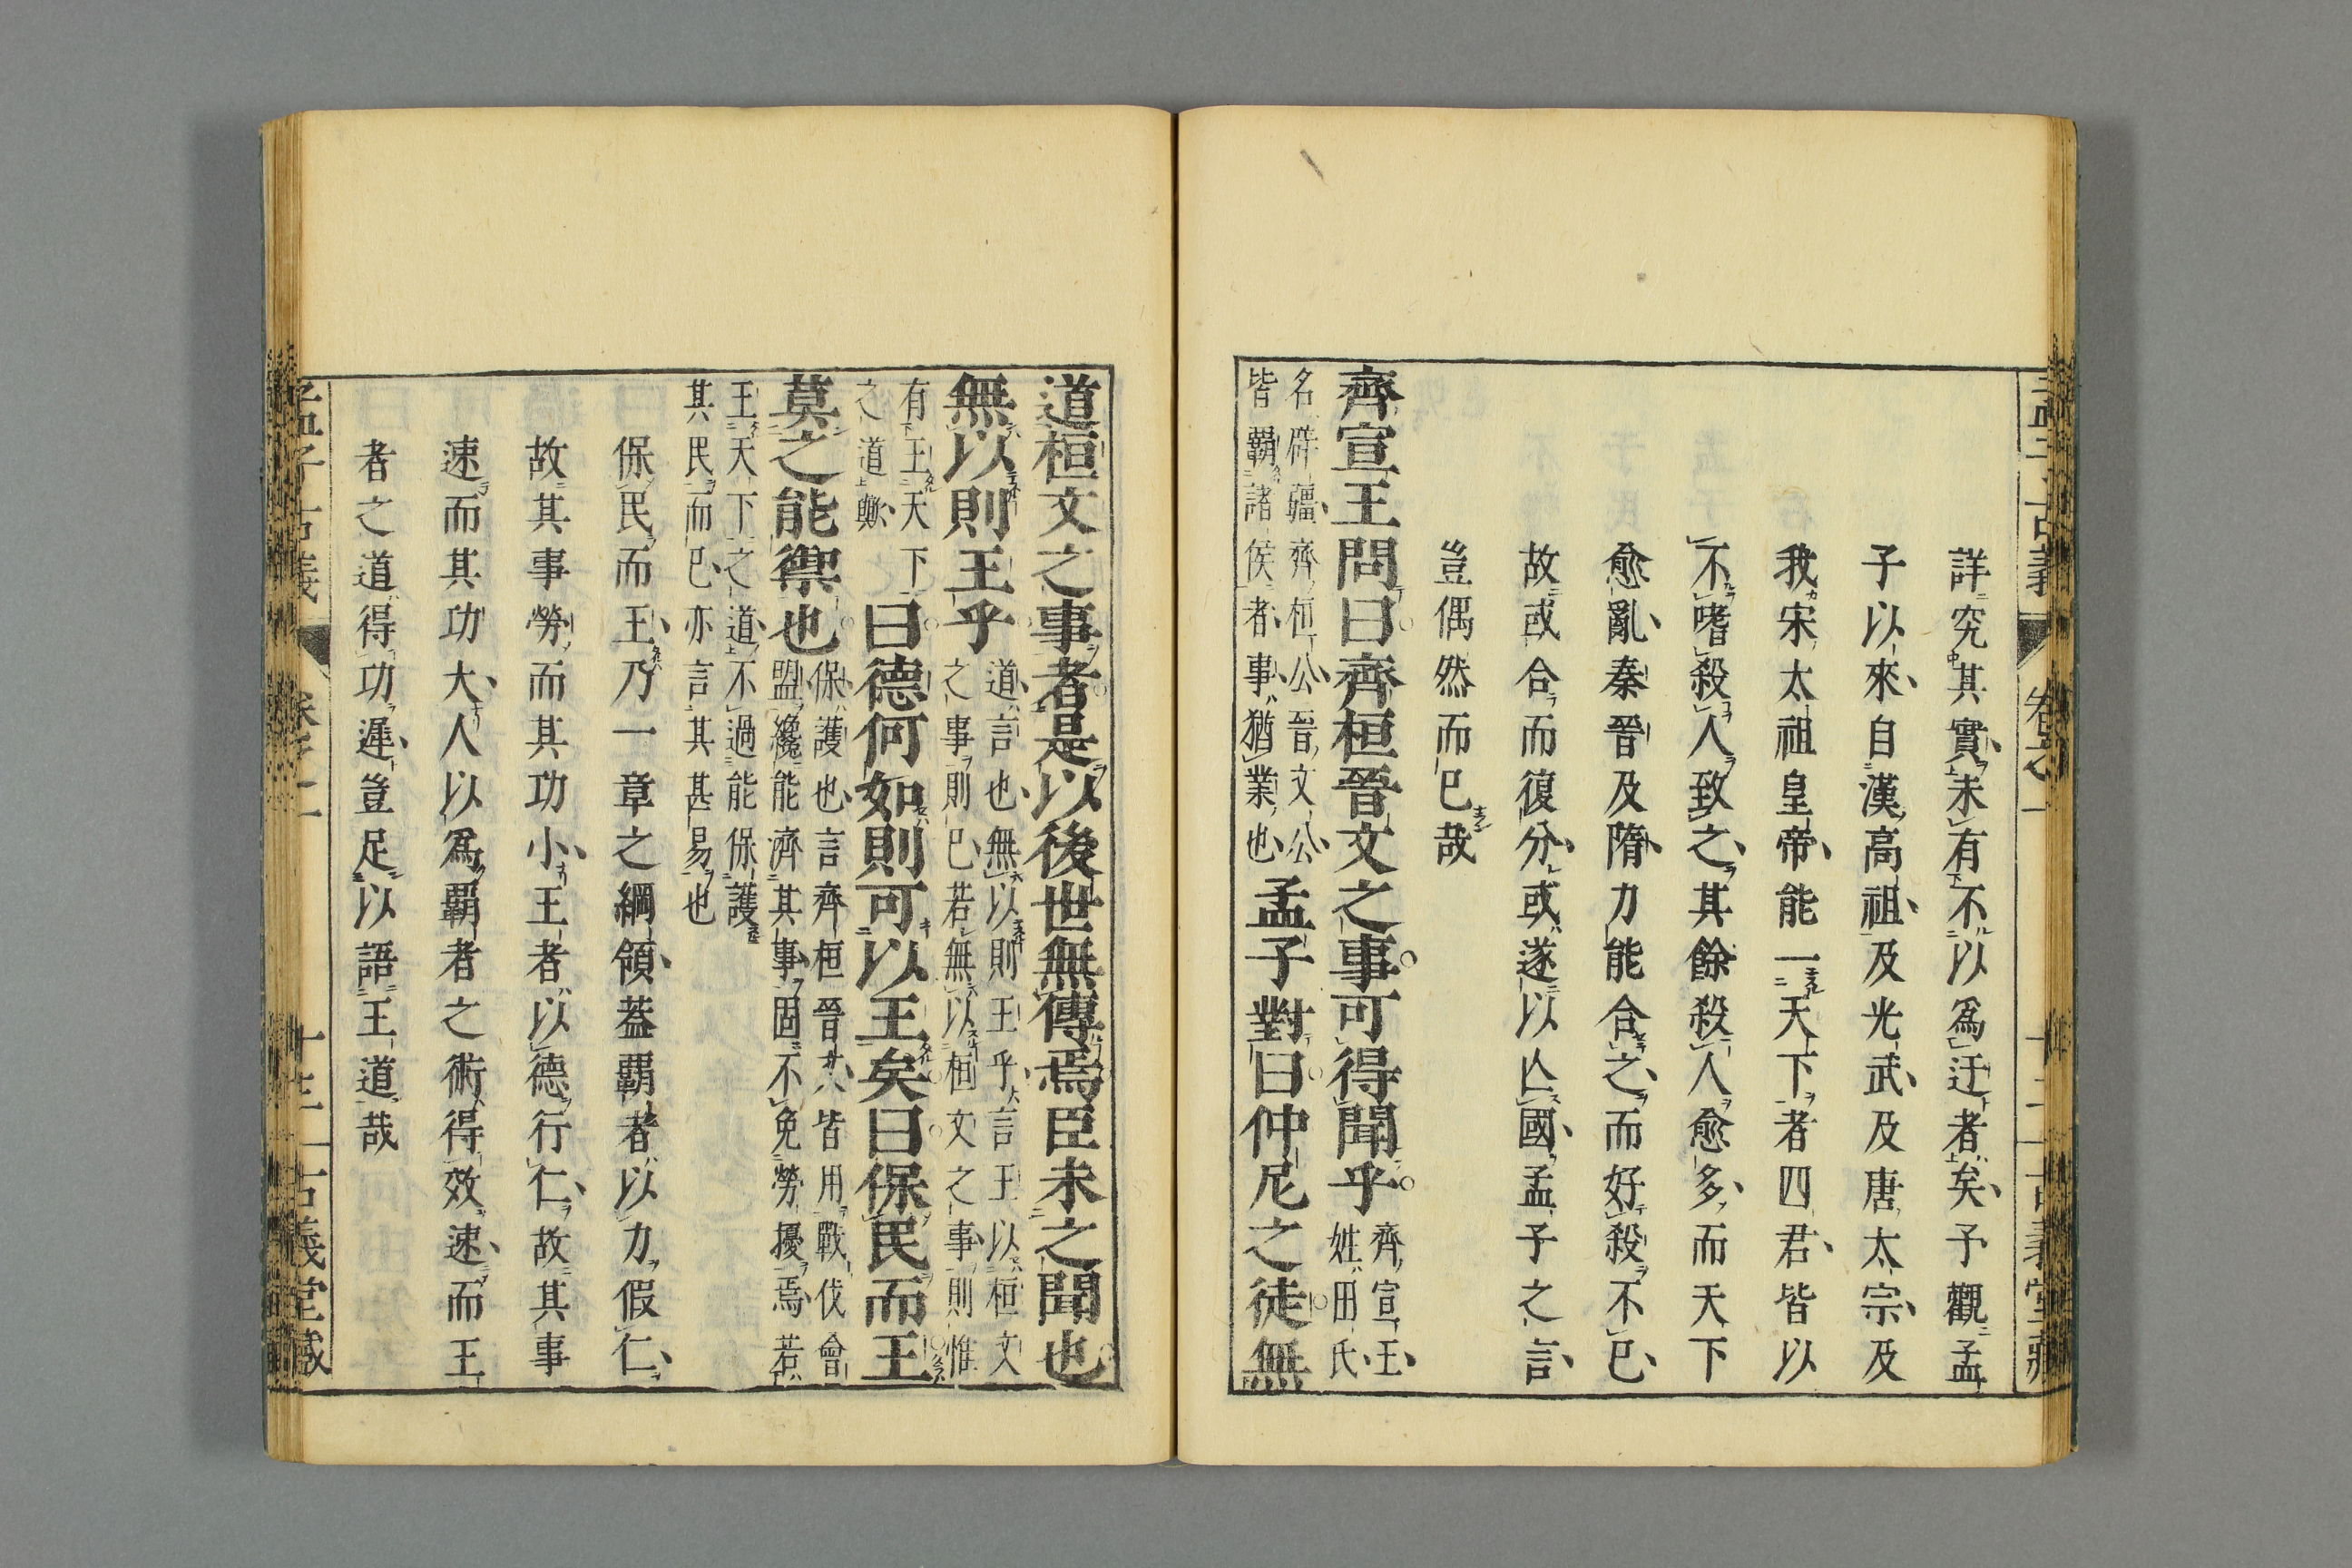 詳究其實未有不以爲迂者矣予觀孟
子以來自漢高祖及光武及唐太宗及
我宋太祖皇帝能一天下者四君皆以
不嗜殺人致之其餘殺人愈多而天下
愈亂秦晉及隋力能合之而好殺不已
故或合而復分或遂以亾國孟子之言
豈偶然而已哉
齊宣王問曰齊桓晉文之事可得聞乎
齊宣王
姓田氏
名辟疆齊桓公晉文公
皆覇諸侯者事猶業也
孟子對曰仲尼之徒無
道桓文之事者是以後世無傳焉臣未之聞也
無以則王乎
道言也無以則王乎言王以桓文
之事則已若無以桓文之事則惟
有王天下
之道歟
曰德何如則可以王矣曰保民而王
莫之能禦也
保護也言齊桓晉文皆用戰伐會
盟纔能濟其事固不免勞擾焉若
王天下之道不過能保護
其民而已亦言其甚易也
保民而王乃一章之綱領葢覇者以力假仁
故其事勞而其功小王者以德行仁故其事
速而其功大人以爲覇者之術得效速而王
者之道得功遲豈足以語王道哉
孟子古義
卷之一
十三
古義堂藏